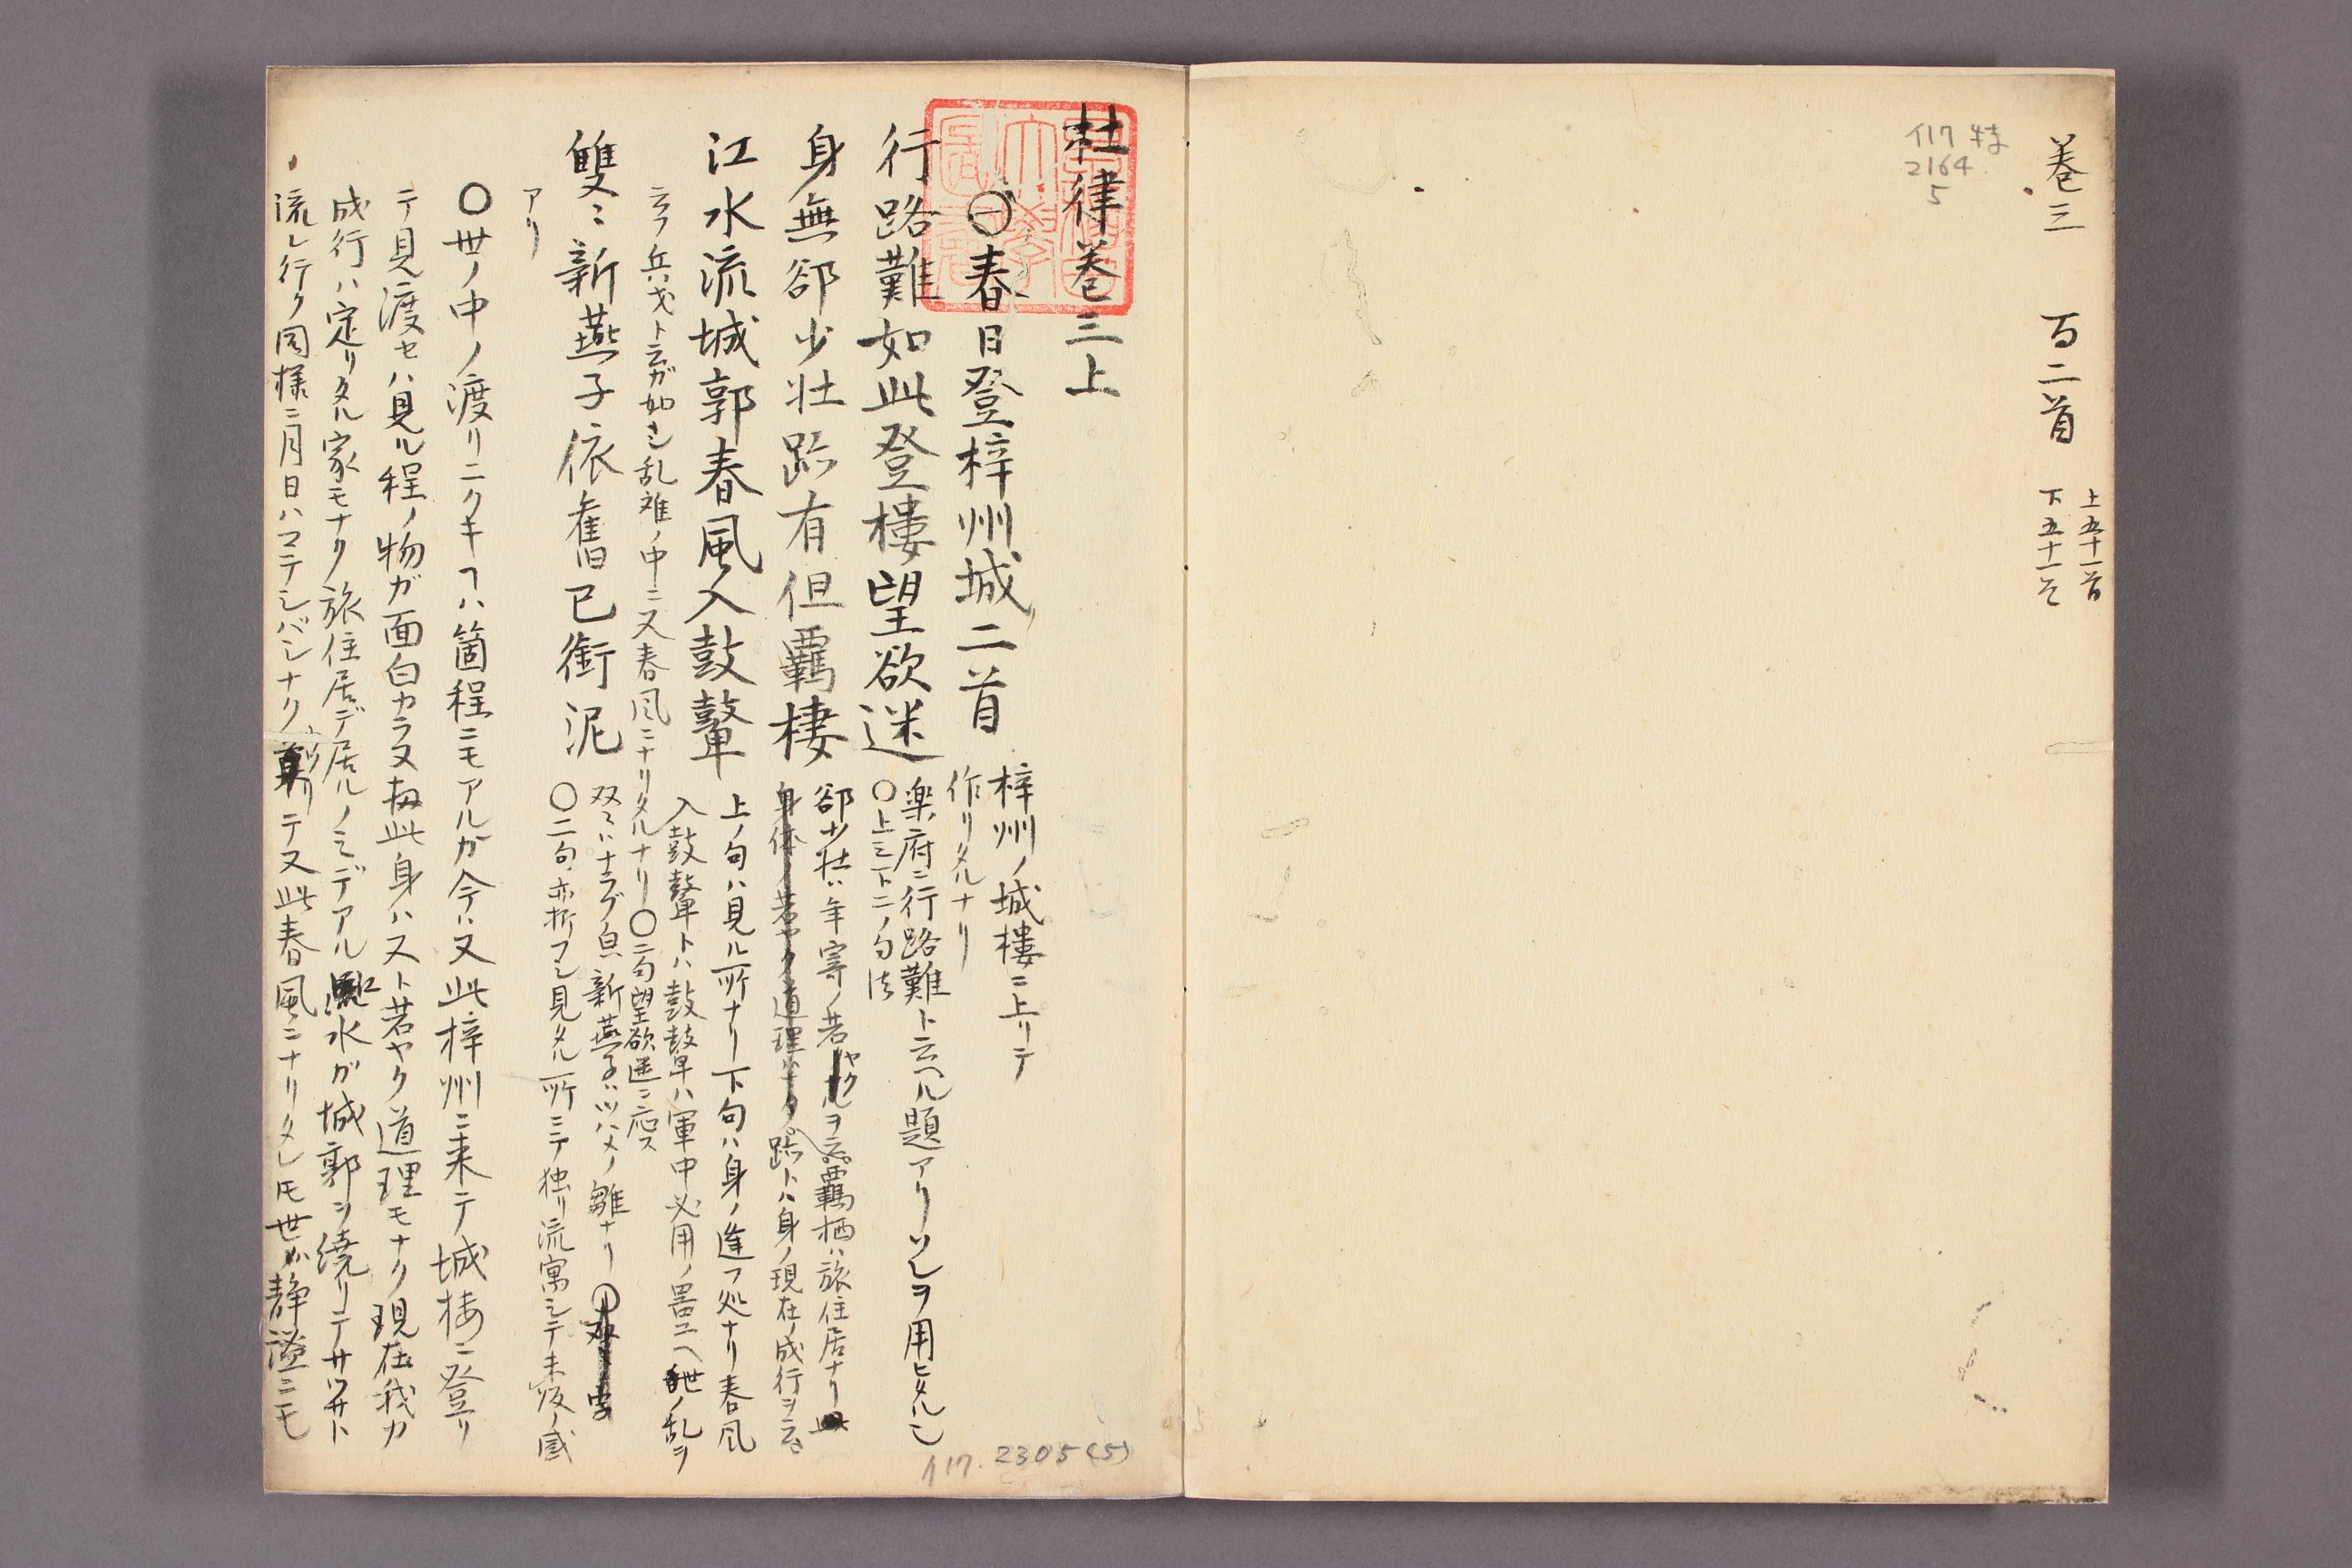 巻三　百二首
上五十一首
下五十一首
イ17 特
2164
5
杜律巻三上
㊀春日登梓州城二首
梓州ノ城樓ニ上リテ
作リタルナリ
行路難如此登樓望欲迷
楽府ニ行路難ト云ヘル題アリソレヲ用ヒタルシ
〇上三下二ノ句法
身無郤少壮跡有但羈棲
郤少壮ハ年寄ノ若ヤクヲ云羈栖ハ旅住居ナリ
身体ノ若ヤク道理ハナク跡トハ身ノ現在ノ成行ヲ云
江水流城郭春風入鼓鼙
上ノ句ハ見ル所ナリ下句ハ身ノ逢フ処ナリ春風
入鼓鼙トハ鼓鼙ハ軍中必用ノ器ユヘ世ノ乱ヲ
云フ兵戈ト云ガ如シ乱難ノ中ニ又春風ニナリタルナリ〇二句望欲迷ニ応ス
雙〻新燕子依舊已銜泥
双〻ハナラブ㒵新燕子ハツバメノ雛ナリ
〇二句亦折フシ見タル所ニテ独リ流寓シテ未返ノ感
アリ
〇世ノ中ノ渡リニクキヿハ箇程ニモアルカ今ハ又此梓州ニ来テ城楼ニ登リ
テ見渡セハ見ル程ノ物ガ面白カラヌ扨此身ハ又ト若ヤク道理モナク現在我カ
成行ハ定リタル家モナク旅住居デ居ルノミデアル江水ガ城郭ヲ繞リテサツサト
流レ行ク同様ニ月日ハマテシバシナク移リテ又此春風ニナリタレ𪜈世ガ静謐ニモ
イ17. 2305(5)